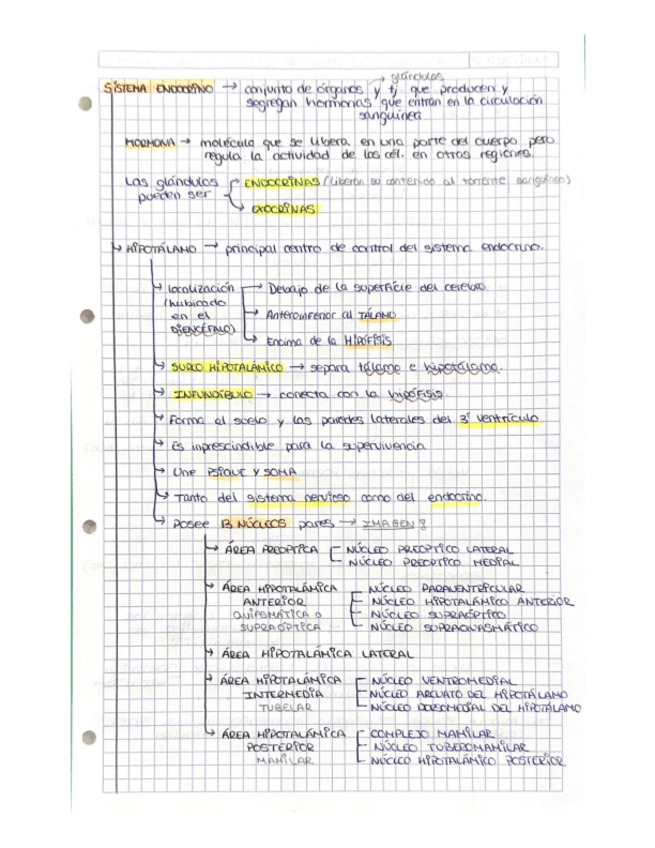 glándulas
SISTEMA ENDOCRINO → conjunto de órganos y tj. que producen y
segregan hormonas que entran en la circulación
sanguínea
HORMONA → molécula que se libera en una parte del cuerpo pero
regula la actividad de las cél. en otras regiones.
Las glándulas pueden ser
ENDOCRINAS (liberan su contenido al torrente sanguíneo)
EXOCRINAS
HIPOTÁLAMO → principal centro de control del sistema endocrino.
localización
(hubicado
en el
DIENCÉFALO)
Debajo de la superficie del cerebro
Anteroinferior al TÁLAMO
Encima de la HIPÓFISIS
SURCO HIPOTALÁMICO → separa tálamo e hipotálamo.
INFUNDÍBULO → conecta con la hipófisis.
Forma al suelo y las paredes laterales del 3er ventrículo
Es inprescindible para la supervivencia
Une PSIQUE Y SOMA
Tanto del sistema nervioso como del endocrino.
Posee 13 NÚCLEOS pares → IMAGEN!
ÁREA PREÓPTICA
NÚCLEO PREÓPTICO LATERAL
NÚCLEO PREÓPTICO MEDIAL
ÁREA HIPOTALÁMICA
ANTERIOR
QUIASMÁTICA o
SUPRAÓPTICA
NÚCLEO PARAVENTRICULAR
NÚCLEO HIPOTALÁMICO ANTERIOR
NÚCLEO SUPRAÓPTICO
NÚCLEO SUPRAQUIASMÁTICO
ÁREA HIPOTALÁMICA LATERAL
ÁREA HIPOTALÁMICA
INTERMEDIA
TUBELAR
NÚCLEO VENTROMEDIAL
NÚCLEO ARCUATO DEL HIPOTÁLAMO
NÚCLEO DORSOMEDIAL DEL HIPOTÁLAMO
ÁREA HIPOTALÁMICA
POSTERIOR
MAMILAR
COMPLEJO MAMILAR
NÚCLEO TUBEROMAMILAR
NÚCLEO HIPOTALÁMICO POSTERIOR